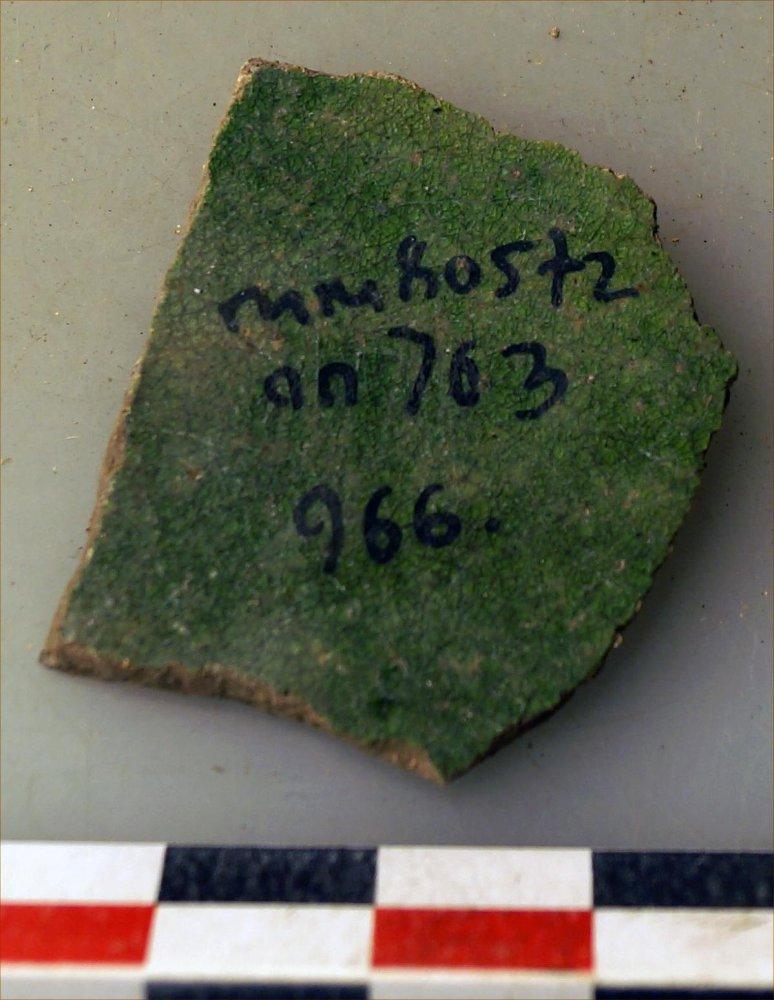 mnMK05t2
an763
966.